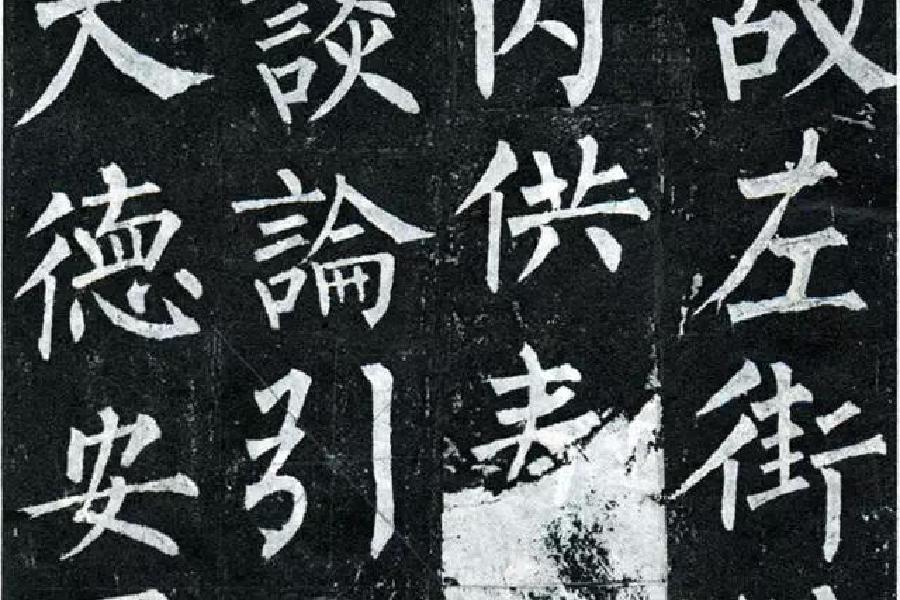 故左街
内供奉
談論引
大德安